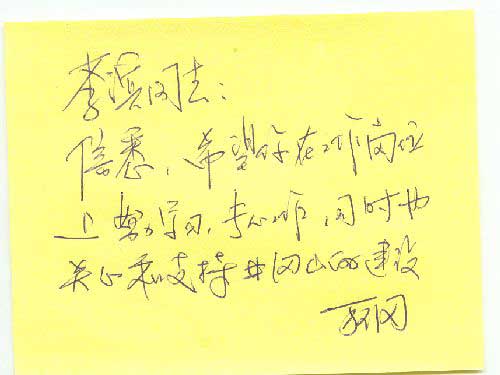 李滨同志：
信悉，希望你在工作岗位
上努力学习，专心工作，同时也
关心和支持井冈山的建设